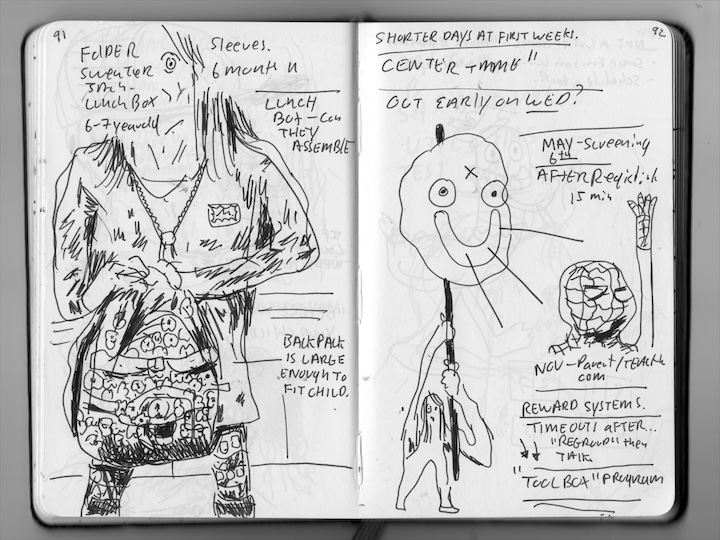 91
FOLDER
SWEATER
LUNCH BOX
6-7 year old
SLEEVES.
6 month
LUNCH
BOX - CAN
THEY
ASSEMBLE
BACKPACK
IS LARGE
ENOUGH TO
FIT CHILD.
92
SHORTER DAYS AT FIRST WEEKS.
CENTER TIME"
OUT EARLY ON WED?
MAY - SCREENING
6th
AFTER
15 min
NOV - Parent/TEACHER
COM
REWARD SYSTEMS.
TIMEOUTS AFTER...
"REGROUP" then
TALK
"TOOL BOX" PROGRAM